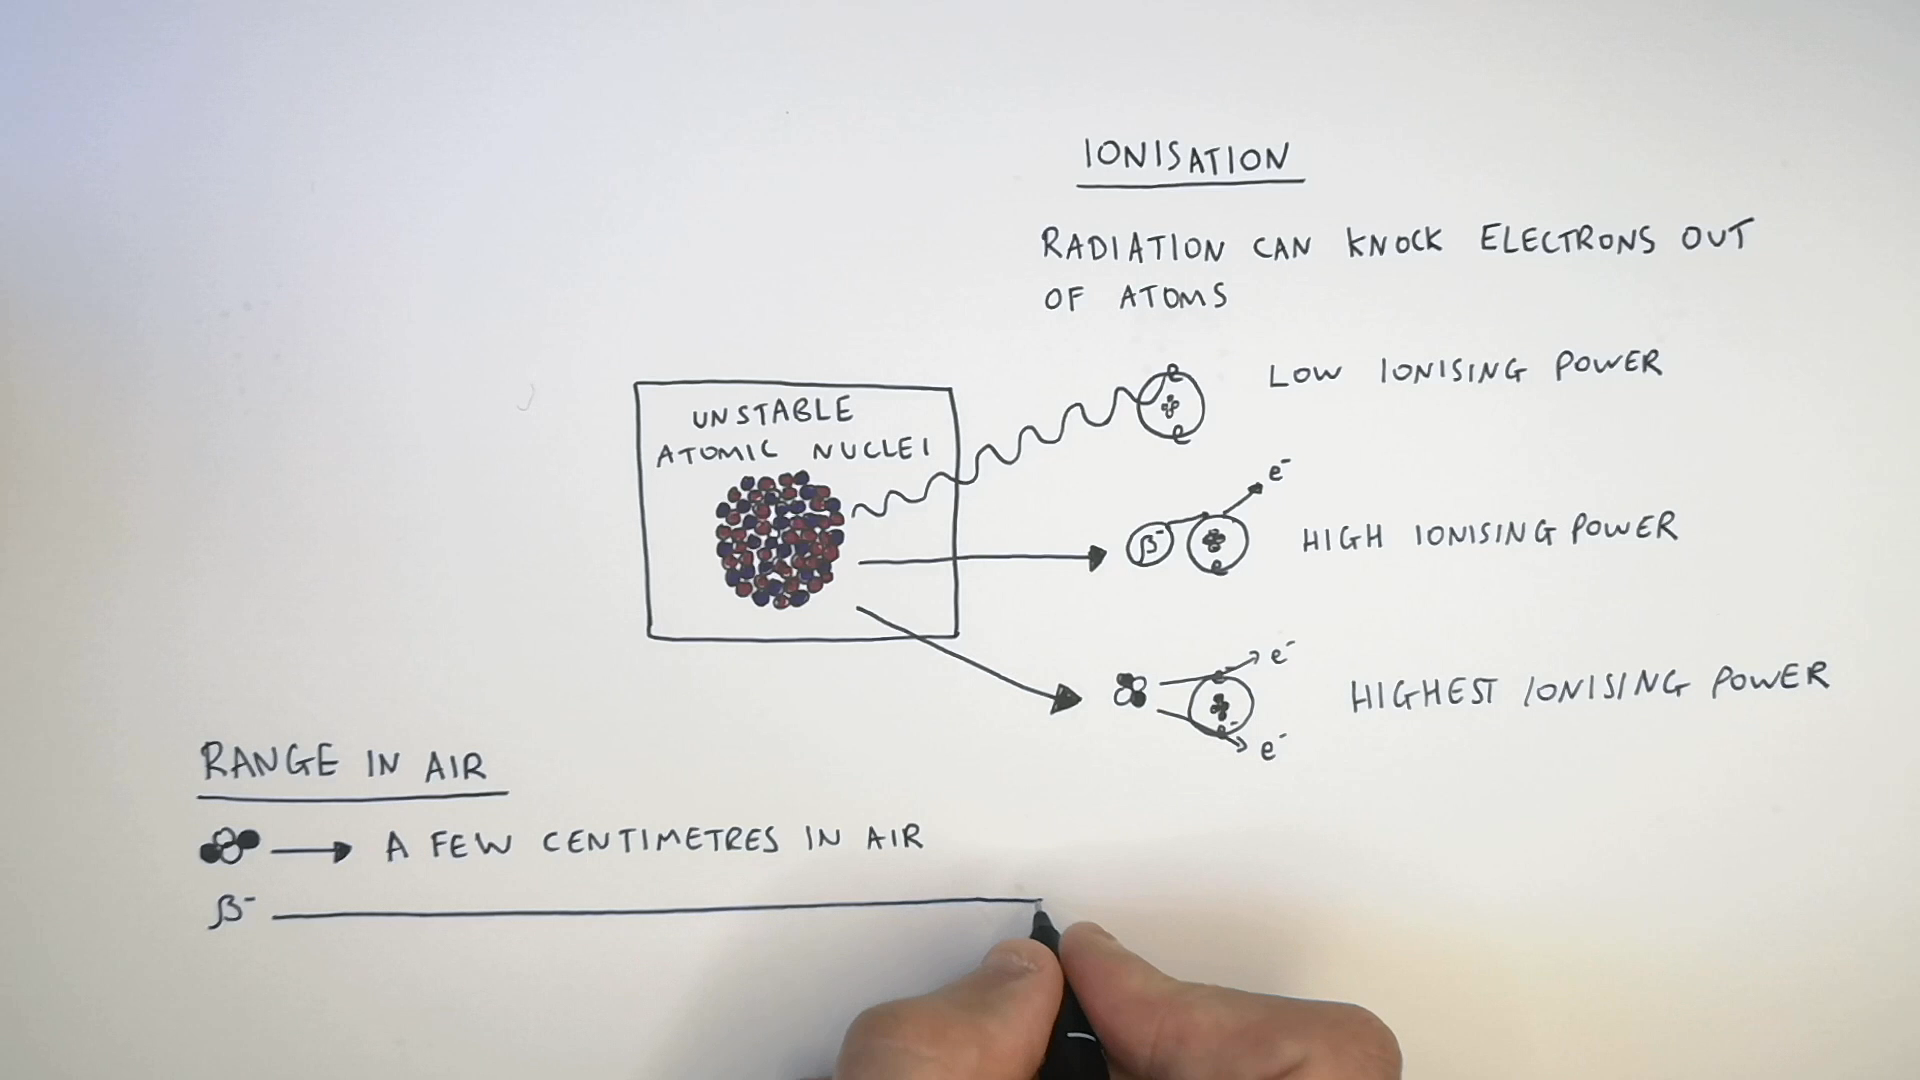 IONISATION
RADIATION CAN KNOCK ELECTRONS OUT
OF ATOMS
UNSTABLE
ATOMIC NUCLEI
e
e
LOW IONISING POWER
e⁻
β⁻
e
HIGH IONISING POWER
e⁻
e⁻
e⁻
HIGHEST IONISING POWER
RANGE IN AIR
A FEW CENTIMETRES IN AIR
β⁻